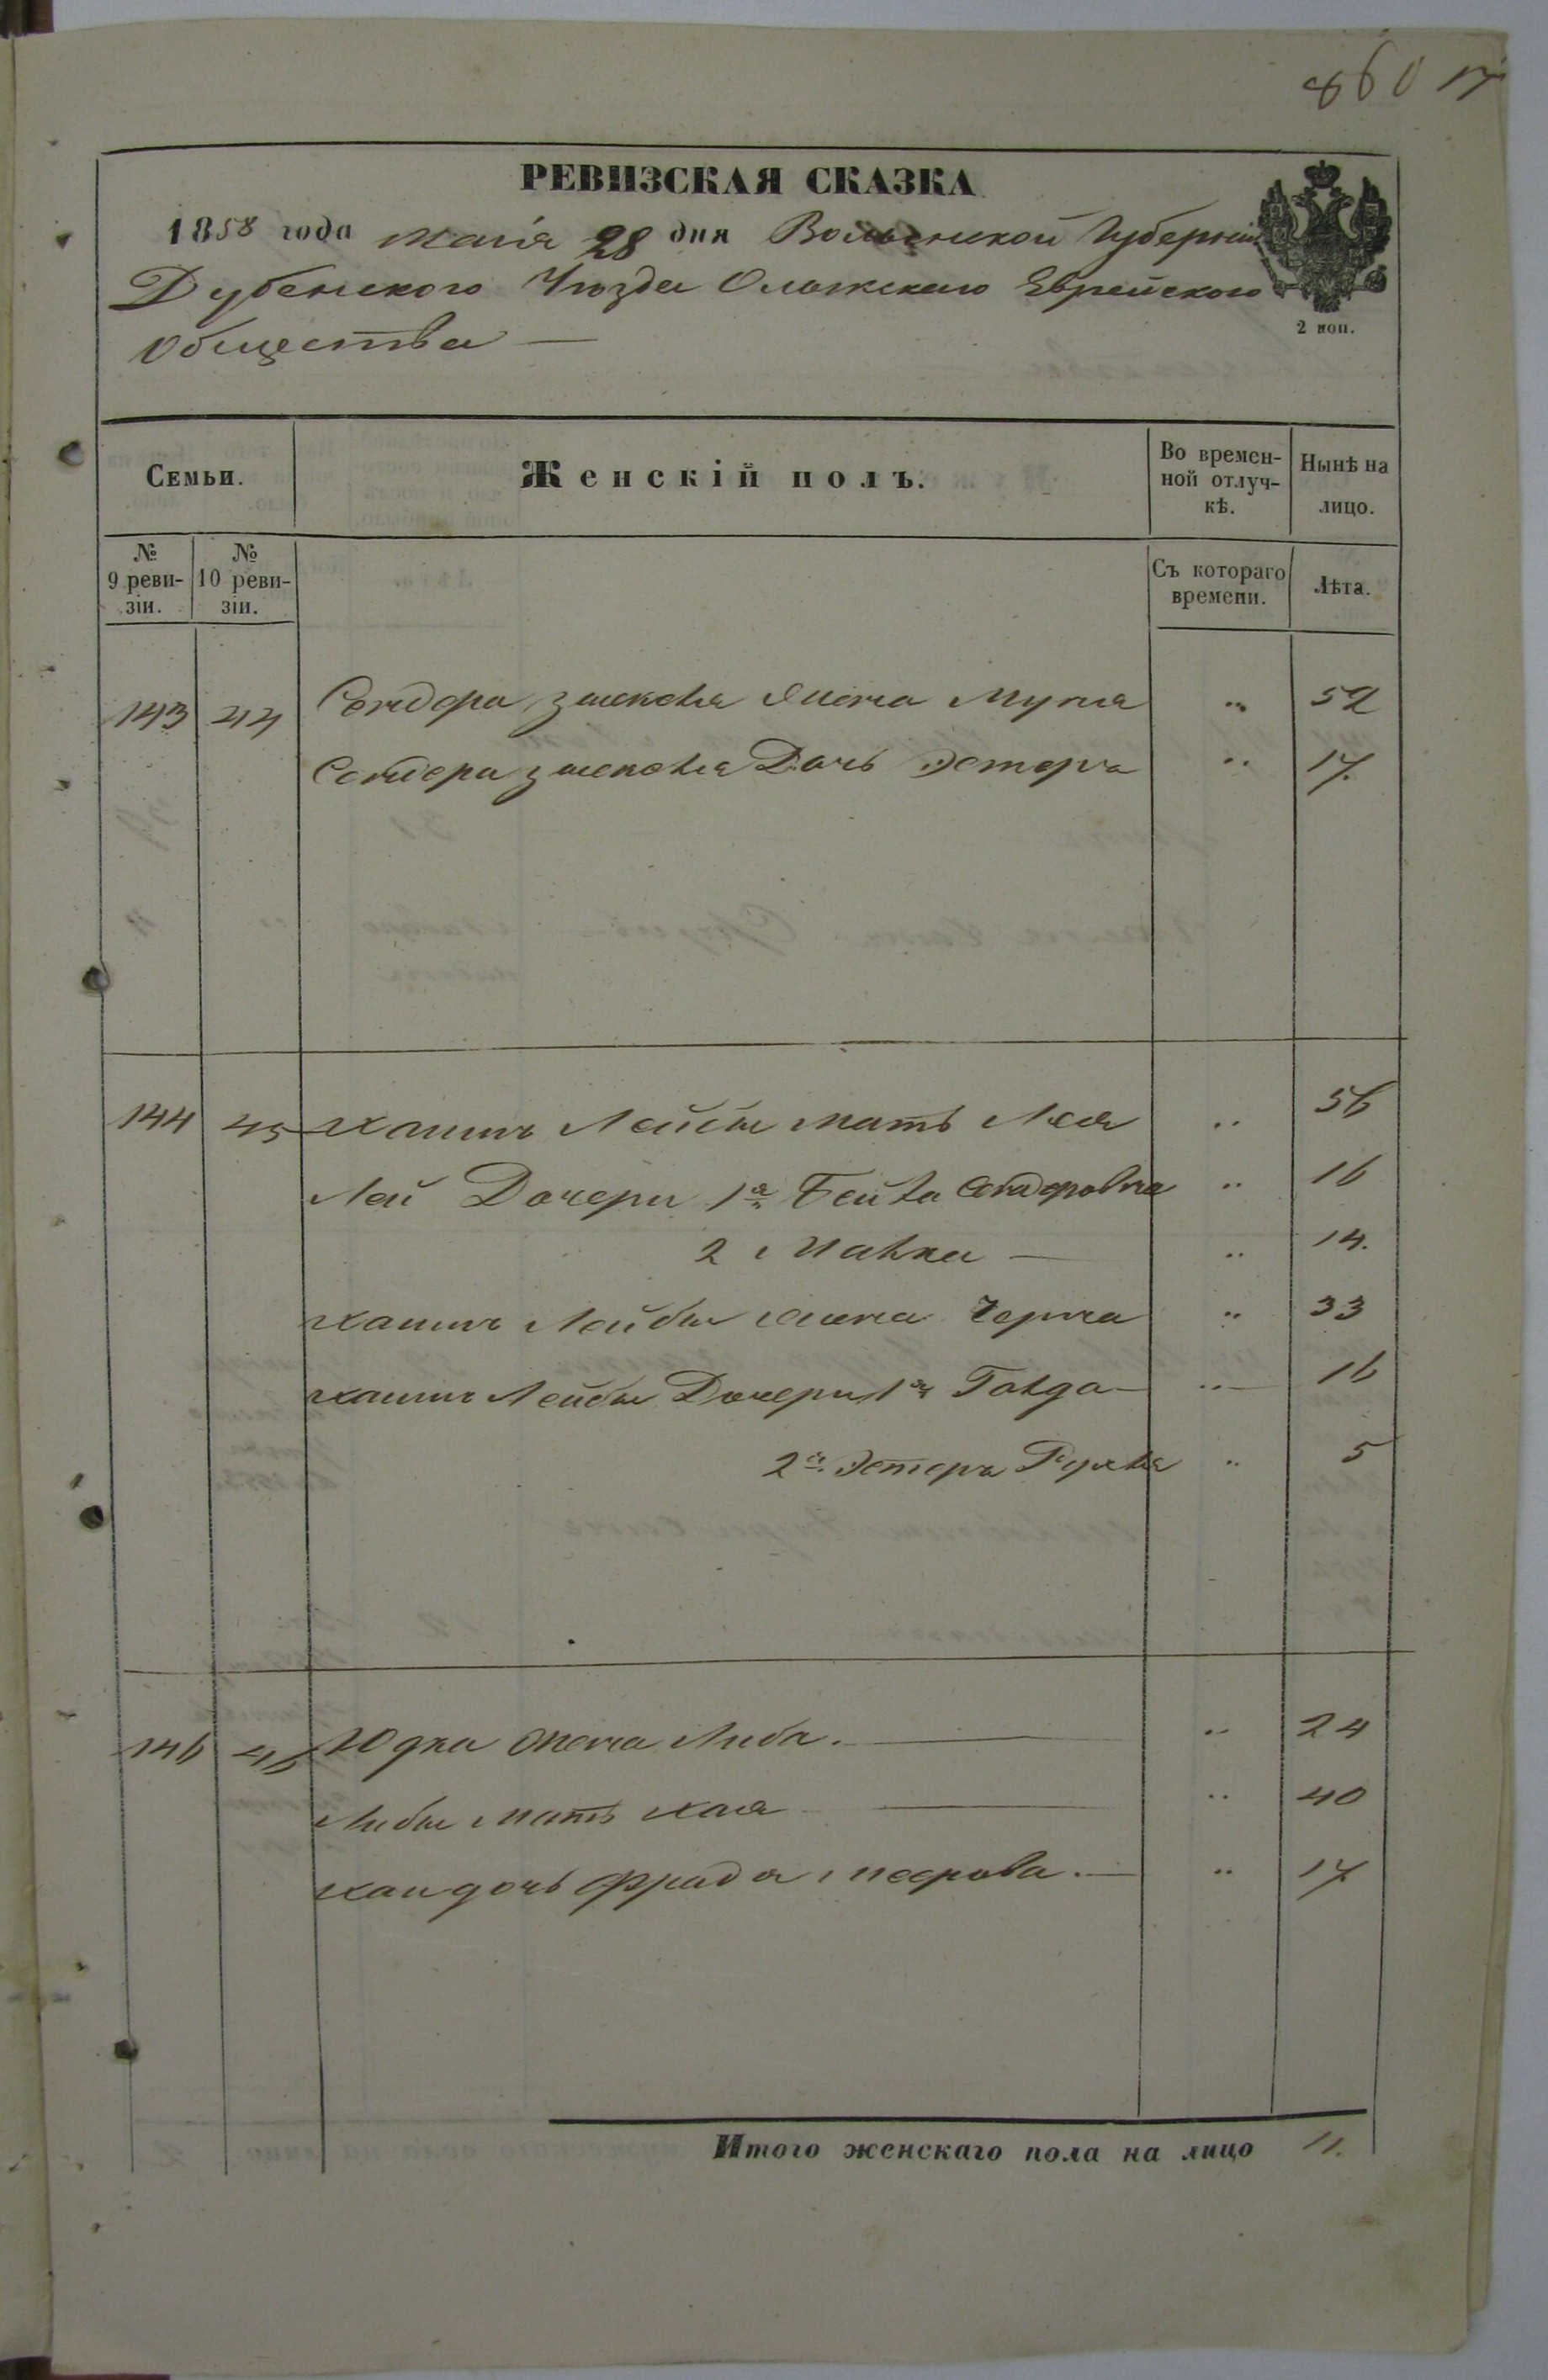 860 17
РЕВИЗСКАЯ СКАЗКА
1858 года маія 28 дня Волынской Губерніи
Дубенского Уѣзда Олыкскаго Еврейского
Общества —
2 коп.
Семьи. Женскій полъ. Во времен-ной отлуч-кѣ. Нынѣ на лицо.
№ 9 реви-зіи. № 10 реви-зіи. Съ котораго времени. Лѣта.
143 44 Сендера Зисковля Жена Муня „ 52
Сендера Зисковля Дочь Эстера „ 17.
144 45 Хаима Лейбы мать Лея „ 56
Леи Дочери 1я Бейла Сендеровна „ 16
2 Малка — „ 14.
Хаима Лейбы жена Черна „ 33
Хаима Лейбы Дочери 1я Голда — „ 16
2я Эстера Рухля „ 5
146 46 Юдка жена Либа. — „ 24
Либы мать Хая — „ 40
Хаи дочь Фрада Меерова. — „ 17
Итого женскаго пола на лицо 11.